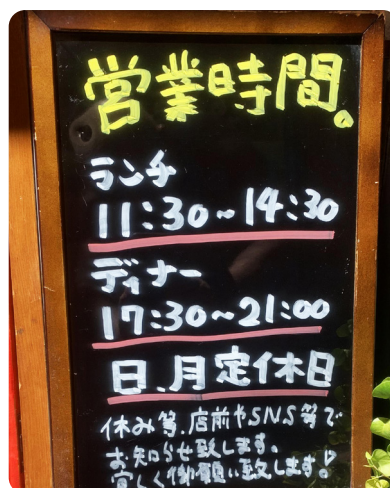 営業時間。
ランチ
11:30~14:30
ディナー
17:30~21:00
日、月定休日
休み等、店前やSNS等で
お知らせ致します。
宜しく御願い致します。